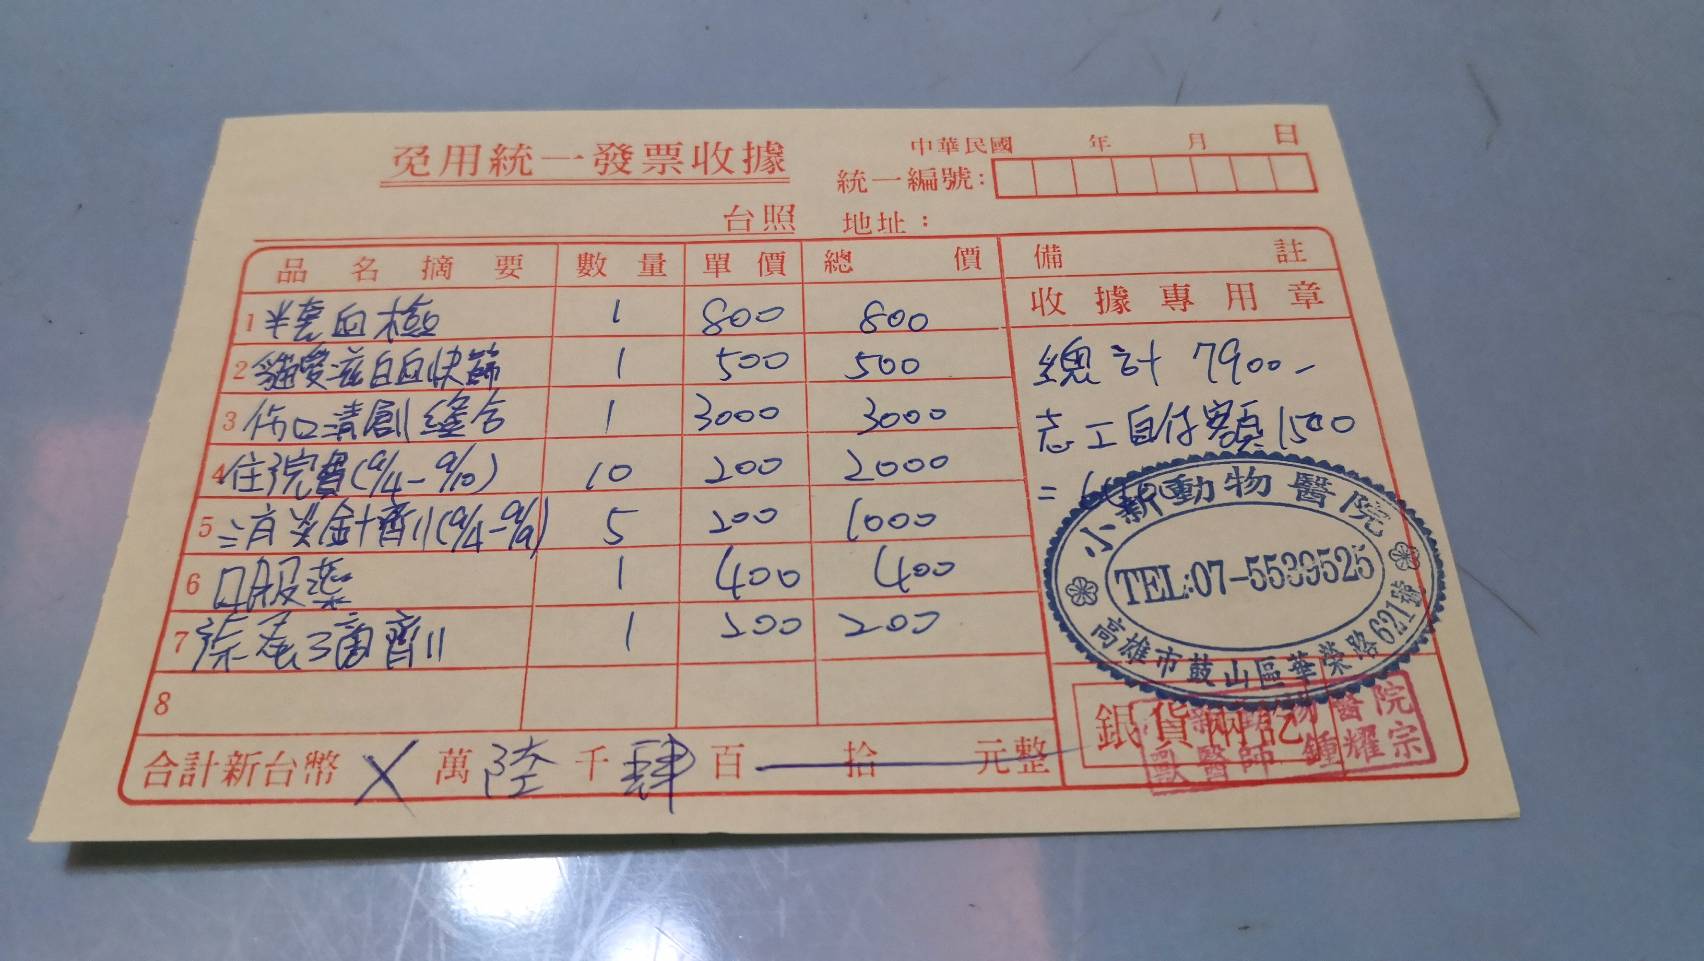 免用統一發票收據
中華民國 年 月 日
統一編號:
台照 地址:
品名摘要 數量 單價 總價 備註
收據專用章
1 半套血檢 1 800 800
2 貓愛滋白血快篩 1 500 500
3 伤口清創縫合 1 3000 3000
4 住院費(9/4-9/10) 10 200 2000
5 消炎金十劑(9/4-9/9) 5 200 1000
6 口服藥 1 400 400
7 除蚤滴劑 1 200 200
8
總計 7900-
志工自付額 1500
=
小新動物醫院
TEL:07-5539525
高雄市鼓山區華榮路621號
合計新台幣 X 萬 陸 千 肆 百 拾 元整
銀貨兩訖
獸醫師 鍾耀宗